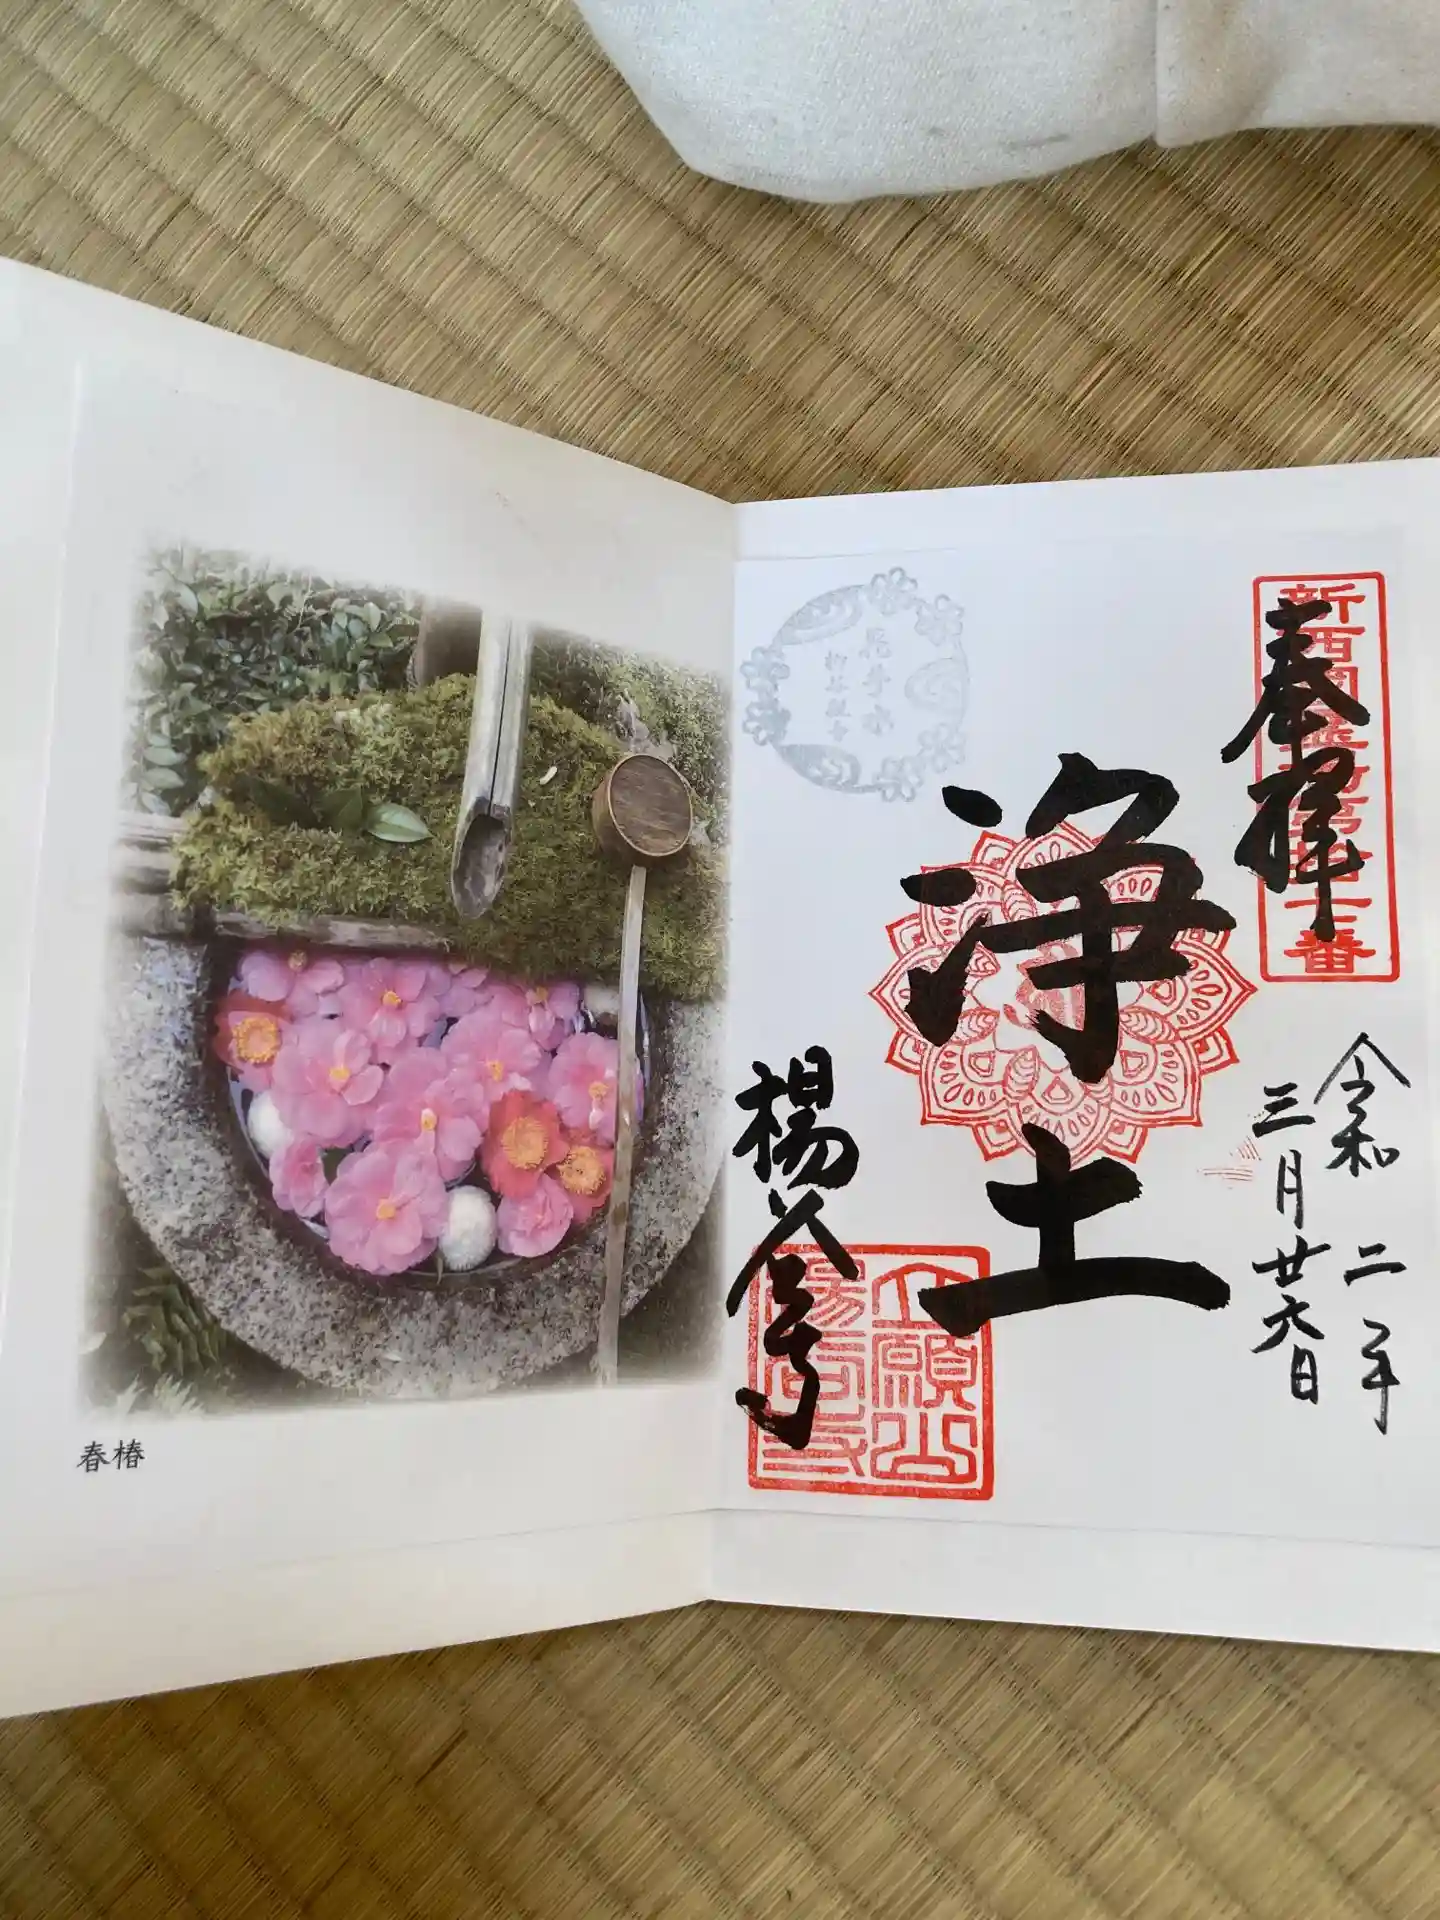 奉拝
新西国霊場第十七番
令和二年
三月廿六日
浄土
花手水
柳谷観音
楊谷寺
立願山
楊谷寺
春椿